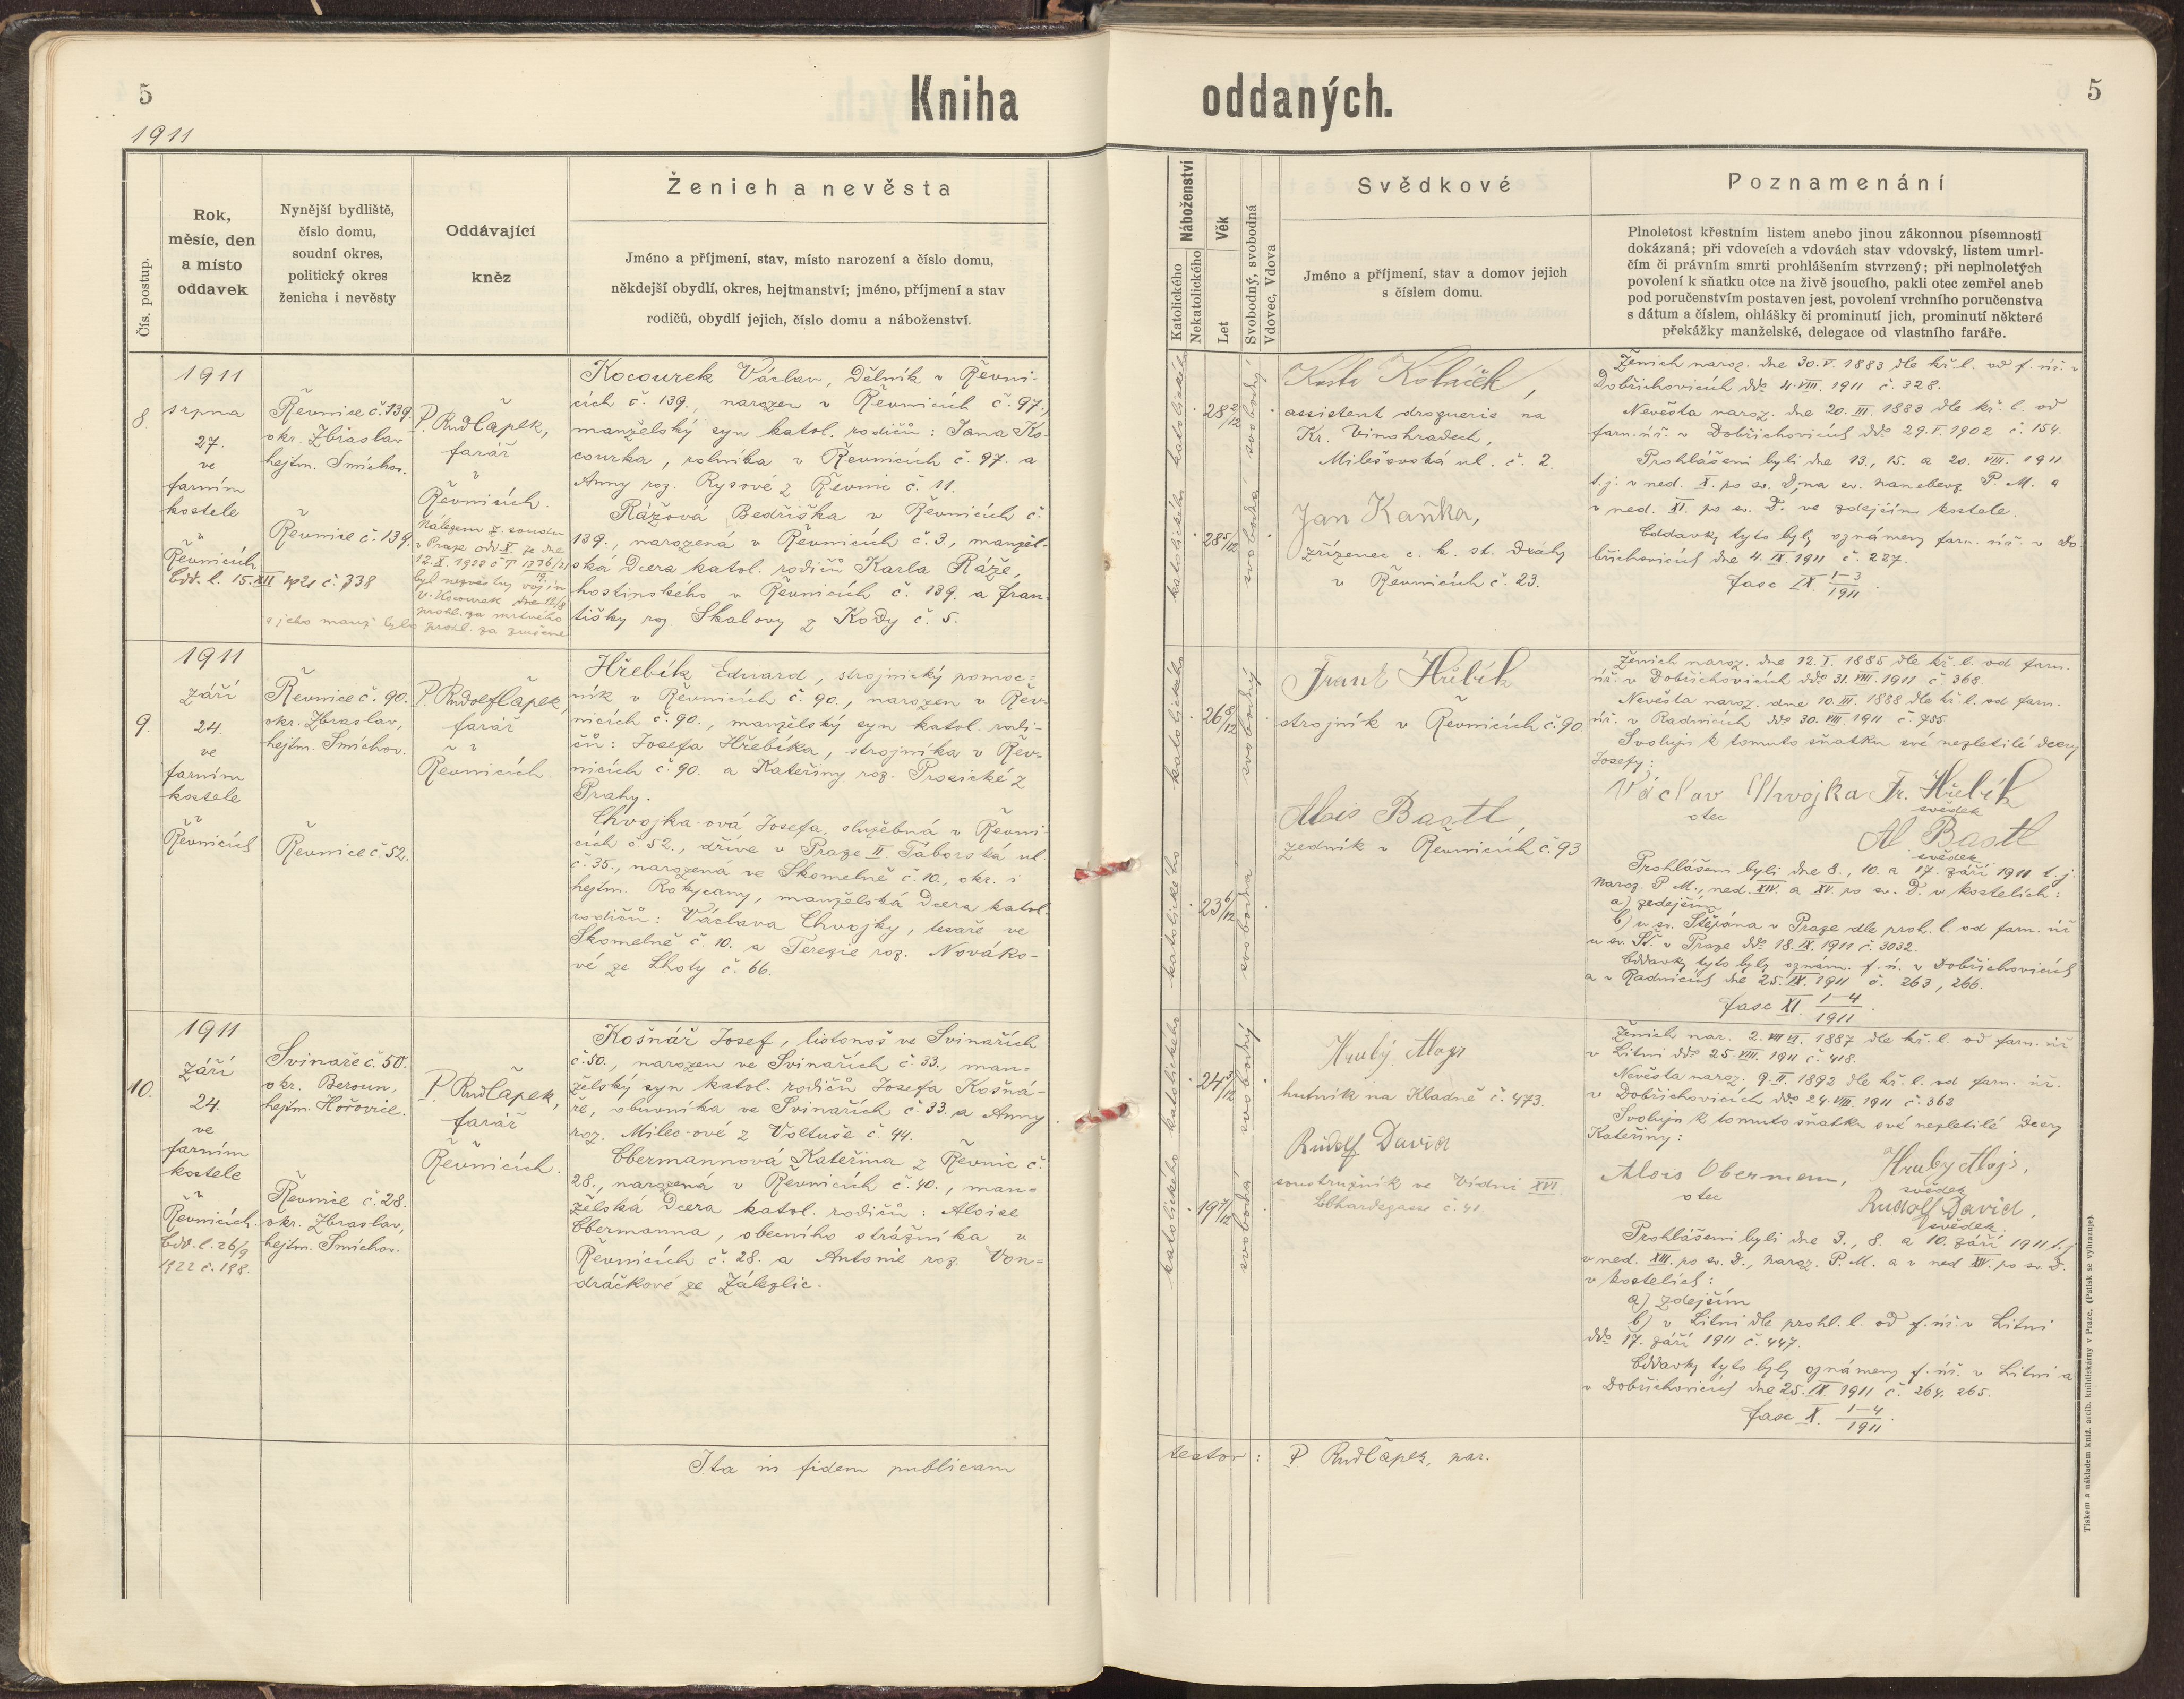 5
Kniha
oddaných.
5
1911
Čís. postup.
Rok,
měsíc, den
a místo
oddavek
Nynější bydliště,
číslo domu,
soudní okres,
politický okres
ženicha i nevěsty
Oddávající
kněz
Ženich a nevěsta
Jméno a příjmení, stav, místo narození a číslo domu,
někdejší obydlí, okres, hejtmanství; jméno, příjmení a stav
rodičů, obydlí jejich, číslo domu a náboženství.
Náboženství
Katolického
Nekatolického
Věk
Let
Svobodný, svobodná
Vdovec, Vdova
Svědkové
Jméno a příjmení, stav a domov jejich
s číslem domu.
Poznamenání
Plnoletost křestním listem anebo jinou zákonnou písemností
dokázaná; při vdovcích a vdovách stav vdovský, listem umrl-
čím či právním smrti prohlášením stvrzený; při neplnoletých
povolení k sňatku otce na živě jsoucího, pakli otec zemřel aneb
pod poručenstvím postaven jest, povolení vrchního poručenstva
s dátum a číslem, ohlášky či prominutí jich, prominutí některé
překážky manželské, delegace od vlastního faráře.
8.
1911
srpna
27.
ve
farním
kostele
v
Řevnicích
Odd. l. 15. XII 1921 č. 338
Řevnice č. 139.
okr. Zbraslav
hejtm. Smíchov.
Řevnice č. 139.
P. Rud Čapek,
farář
v
Řevnicích.
Nálezem z. soudu
v Praze odd. X. ze dne
byl nezvěstný vojín
V. Kocourek
prohl. za mrtvého
a jeho manž. bylo prohl. za zrušené
Kocourek Václav, dělník v Řevni-
cích č. 139., narozen v Řevnicích č. 97.,
manželský syn katol. rodičů: Jana Ko-
courka, rolníka v Řevnicích č. 97. a
Anny roz. Rysové z Řevnic č. 11.
Rážová Bedřiška v Řevnicích č.
139., narozená v Řevnicích č. 3., manžel-
ská dcera katol. rodičů Karla Ráže,
hostinského v Řevnicích č. 139. a Fran-
tišky roz. Skalovy z Kody č. 5.
katolického
katolického
28 2/12
28 5/12
svobodný
svobodná
assistent droguerie na
Kr. Vinohradech,
Milešovská ul. č. 2.
Jan Kaňka,
zřízenec c. k. st. dráhy
v Řevnicích č. 23.
Ženich naroz. dne 30. V. 1883 dle kř. l. od f. úř. v
Dobřichovicích ddo 4. VIII. 1911 č. 328.
Nevěsta naroz. dne 20. III. 1883 dle kř. l. od
farn. úř. v Dobřichovicích ddo 29. V. 1902 č. 154.
Prohlášeni byli dne 13., 15. a 20. VIII. 1911
t. j. v ned. X. po sv. D., na sv. Nanebevz. P. M. a
v ned. XI. po sv. D. ve zdejším kostele.
Oddavky tyto byly oznámeny farn. úř. v Do-
břichovicích dne 4. IX. 1911 č. 227.
fasc IX. 1–3/1911
9.
1911
září
24.
ve
farním
kostele
v
Řevnicích
Řevnice č. 90.
okr. Zbraslav,
hejtm. Smíchov.
Řevnice č. 52.
P. Rudolf Čapek,
farář
v
Řevnicích.
Hřebík Eduard, strojnický pomoc-
ník v Řevnicích č. 90., narozen v Řev-
nicích č. 90., manželský syn katol. rodi-
čů: Josefa Hřebíka, strojníka v Řev-
nicích č. 90. a Kateřiny roz. Prosické z
Prahy.
Chvojka-ová Josefa, služebná v Řevni-
cích č. 52., dříve v Praze II. Táborská ul.
č. 35., narozená ve Skomelně č. 10., okr. i
hejtm. Rokycany, manželská dcera katol.
rodičů: Václava Chvojky, tesaře ve
Skomelně č. 10. a Terezie roz. Nováko-
vé ze Lhoty č. 66.
katolického
katolického
26 8/12
23 6/12
svobodný
svobodná
Frant Hřebík
strojník v Řevnicích č. 90.
Alois Bastl,
zedník v Řevnicích č. 93
Ženich naroz. dne 12. I. 1885 dle kř. l. od farn.
úř. v Dobřichovicích ddo 31. VIII. 1911 č. 368.
Nevěsta naroz. dne 10. III. 1888 dle kř. l. od farn.
úř. v Radnicích ddo 30. VIII. 1911 č. 755
Svoluji k tomuto sňatku své nezletilé dcery
Josefy:
Václav Chvojka Fr. Hřebík
otec
svědek
Al. Bastl
svědek
Prohlášeni byli dne 8., 10. a 17. září 1911 t. j.
Naroz. P. M., ned. XIV. a XV. po sv. D. v kostelích:
a) zdejším
b) u sv. Štěpána v Praze dle proh. l. od farn. úř
u sv. Št. v Praze ddo 18. IX. 1911 č. 3032.
Oddavky tyto byly oznám. f. ú. v Dobřichovicích
a v Radnicích dne 25. IX. 1911 č. 263, 266.
fasc XI. 1–4/1911.
10.
1911
září
24.
ve
farním
kostele
v
Řevnicích.
Odd. l. 26/9
1922 č. 198.
Svinaře č. 50.
okr. Beroun,
hejtm. Hořovice.
Řevnice č. 28.
okr. Zbraslav,
hejtm. Smíchov.
P. Rud Čapek,
farář
v
Řevnicích.
Košnář Josef, listonoš ve Svinařích
č. 50., narozen ve Svinařích č. 33., man-
želský syn katol. rodičů Josefa Košná-
ře, obuvníka ve Svinařích č. 33. a Anny
roz. Milec-ové z Voltuše č. 44.
Obermannová Kateřina z Řevnic č.
28., narozená v Řevnicích č. 40., man-
želská dcera katol. rodičů: Aloise
Obermanna, obecního strážníka v
Řevnicích č. 28. a Antonie roz. Von-
dráčkové ze Zálezlic.
katolického
katolického
24 3/12
19 7/12
svobodný
svobodná
Hrubý Alojs
hutník na Kladně č. 473.
Rudolf David
soustružník ve Vídni XVI.
č. 41.
Ženich nar. 2. VI. 1887 dle kř. l. od farn. úř
v Litni ddo 25. VIII. 1911 č. 418.
Nevěsta naroz. 9. II. 1892 dle kř. l. od farn. úř.
v Dobřichovicích ddo 24. VIII. 1911 č. 362
Svoluji k tomuto sňatku své nezletilé dcery
Kateřiny:
Alois Obermann, Hrubý Alojs,
otec
svědek
Rudolf David,
svědek.
Prohlášeni byli dne 3., 8. a 10. září 1911 t. j.
v ned. XIII. po sv. D., Naroz. P. M. a v ned XIV. po sv. D.
v kostelích:
a) zdejším
b) v Litni dle prohl. l. od f. úř. v Litni
ddo 17. září 1911 č. 447.
Oddavky tyto byly oznámeny f. úř. v Litni a
v Dobřichovicích dne 25. IX. 1911 č. 264, 265.
fasc X. 1–4/1911.
Ita in fidem publicam
testor: P Rud Čapek, par.
Tiskem a nákladem kníž. arcib. knihtiskárny v Praze. (Patisk se vyhrazuje).